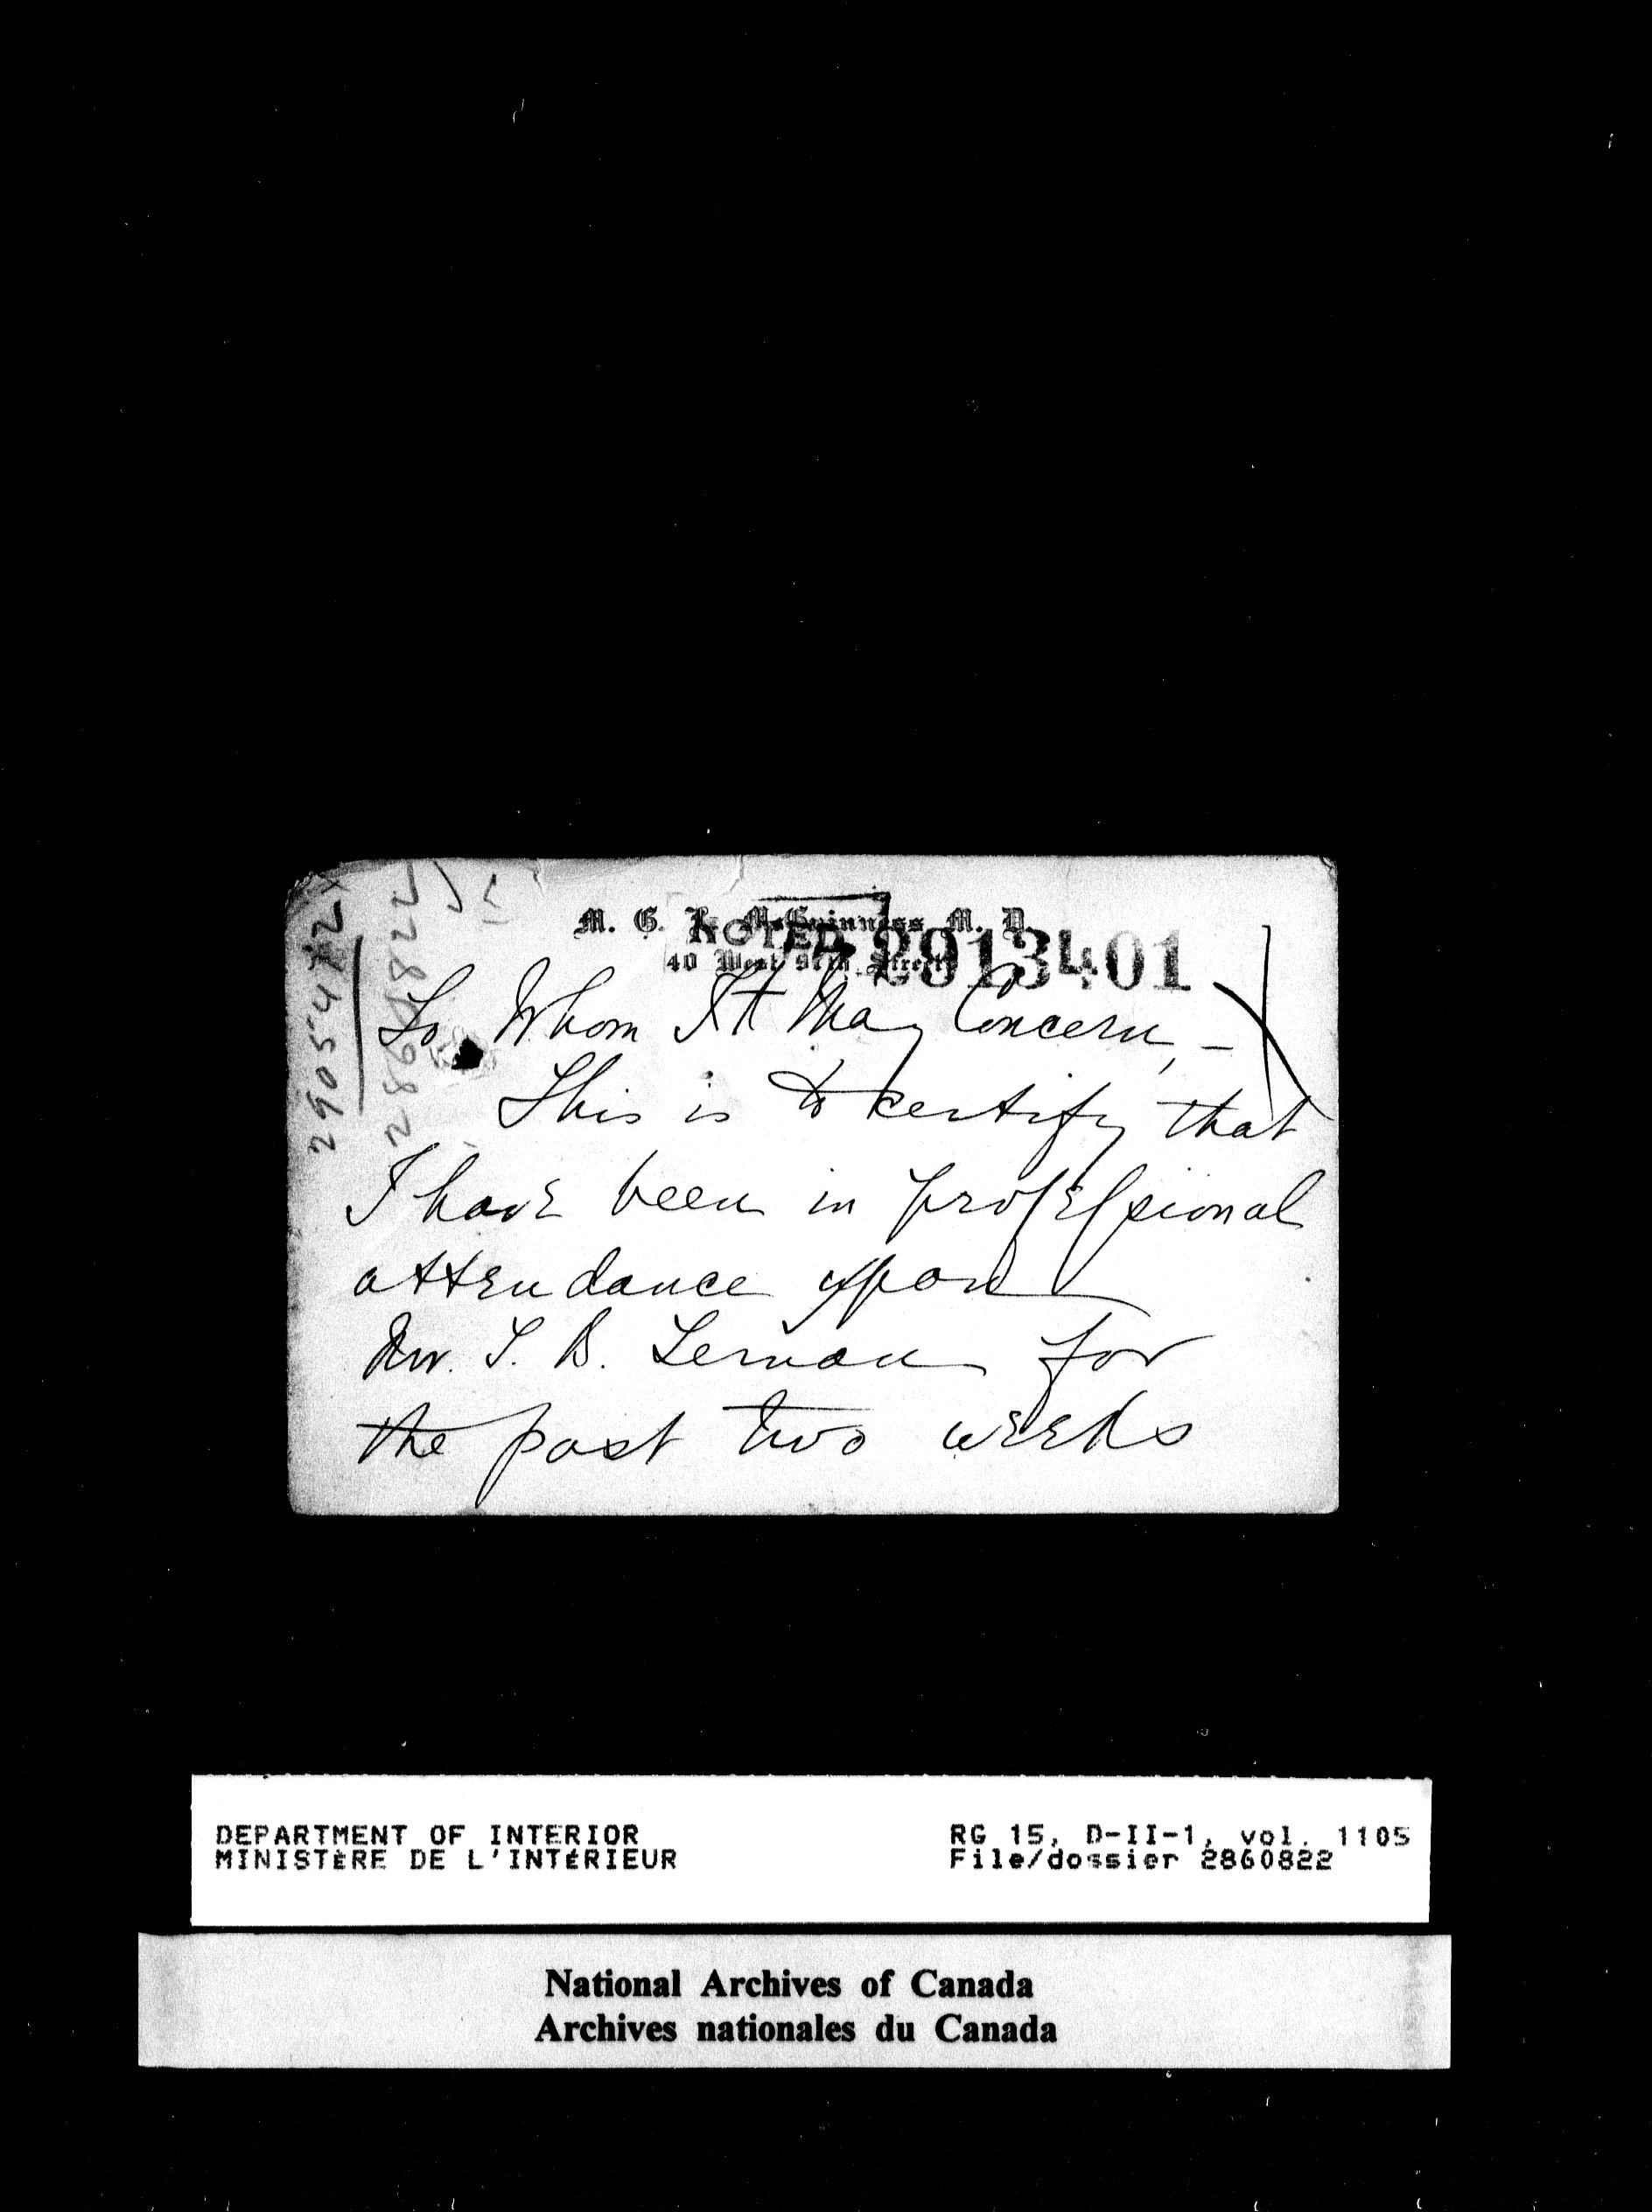 M. G. McGuinness M. D.
40 West 91th Street
NOTED
2913401
2905472
2860822
To Whom It May Concern, –
This is to certify that
I have been in professional
attendance upon
Mr. T. B. Lernan for
the past two weeks
DEPARTMENT OF INTERIOR
MINISTÈRE DE L'INTÉRIEUR
RG 15, D-II-1, vol. 1105
File/dossier 2860822
National Archives of Canada
Archives nationales du Canada